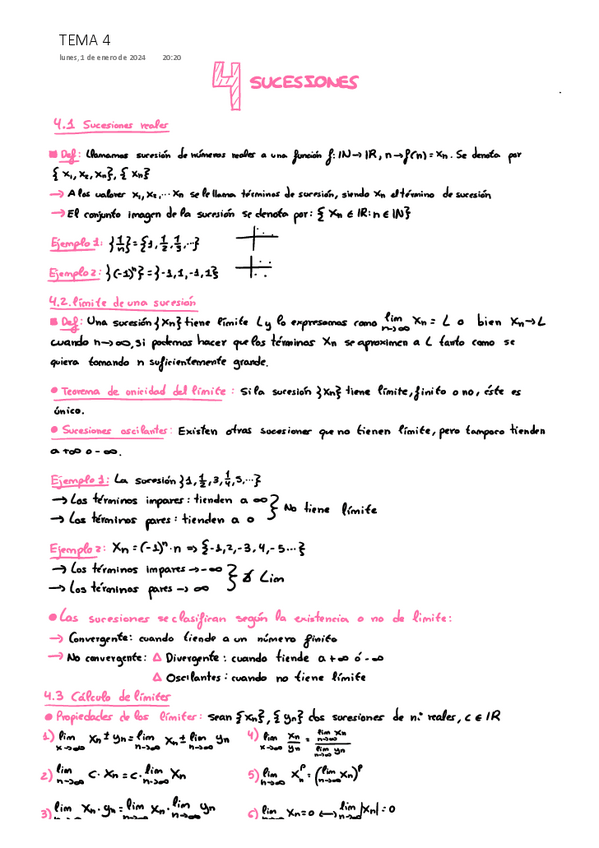 TEMA 4
lunes, 1 de enero de 2024 20:20
4 SUCESIONES
4.1 Sucesiones reales
Def: Llamamos sucesión de números reales a una función f: IN → IR, n → f(n) = xn. Se denota por
{x1, x2, xn}, {xn}
→ A los valores x1, x2, ... xn se le llama términos de sucesión, siendo xn el término de sucesión
→ El conjunto imagen de la sucesión se denota por: {xn ∈ IR: n ∈ IN}
Ejemplo 1: {1/n} = {1, 1/2, 1/3, ...}
Ejemplo 2: {(-1)^n} = {-1, 1, -1, 1}
4.2. límite de una sucesión
Def: Una sucesión {xn} tiene límite L y lo expresamos como lim n→∞ xn = L o bien xn → L
cuando n → ∞, si podemos hacer que los términos xn se aproximen a L tanto como se
quiera tomando n suficientemente grande.
• Teorema de unicidad del límite: Si la sucesión {xn} tiene límite, finito o no, éste es
único.
• Sucesiones oscilantes: Existen otras sucesiones que no tienen límite, pero tampoco tienden
a +∞ o -∞.
Ejemplo 1: La sucesión {1, 1/2, 3, 1/4, 5, ...}
→ Los términos impares: tienden a ∞ } No tiene límite
→ Los términos pares: tienden a 0
Ejemplo 2: xn = (-1)^n · n ⇒ {-1, 2, -3, 4, -5 ...}
→ Los términos impares → -∞ } ∄ Lim
→ Los términos pares → ∞
• Las sucesiones se clasifican según la existencia o no de límite:
→ Convergente: cuando tiende a un número finito
→ No convergente: △ Divergente: cuando tiende a +∞ ó -∞
△ Oscilantes: cuando no tiene límite
4.3 Cálculo de límites
• Propiedades de los límites: sean {xn}, {yn} dos sucesiones de n.º reales, c ∈ IR
1) lim x→∞ xn ± yn = lim n→∞ xn ± lim n→∞ yn 4) lim x→∞ xn/yn = lim n→∞ xn / lim n→∞ yn
2) lim n→∞ c · xn = c · lim n→∞ xn 5) lim n→∞ xn^p = (lim n→∞ xn)^p
3) lim n→∞ xn · yn = lim n→∞ xn · lim n→∞ yn 6) lim n→∞ xn = 0 ⟷ lim n→∞ |xn| = 0